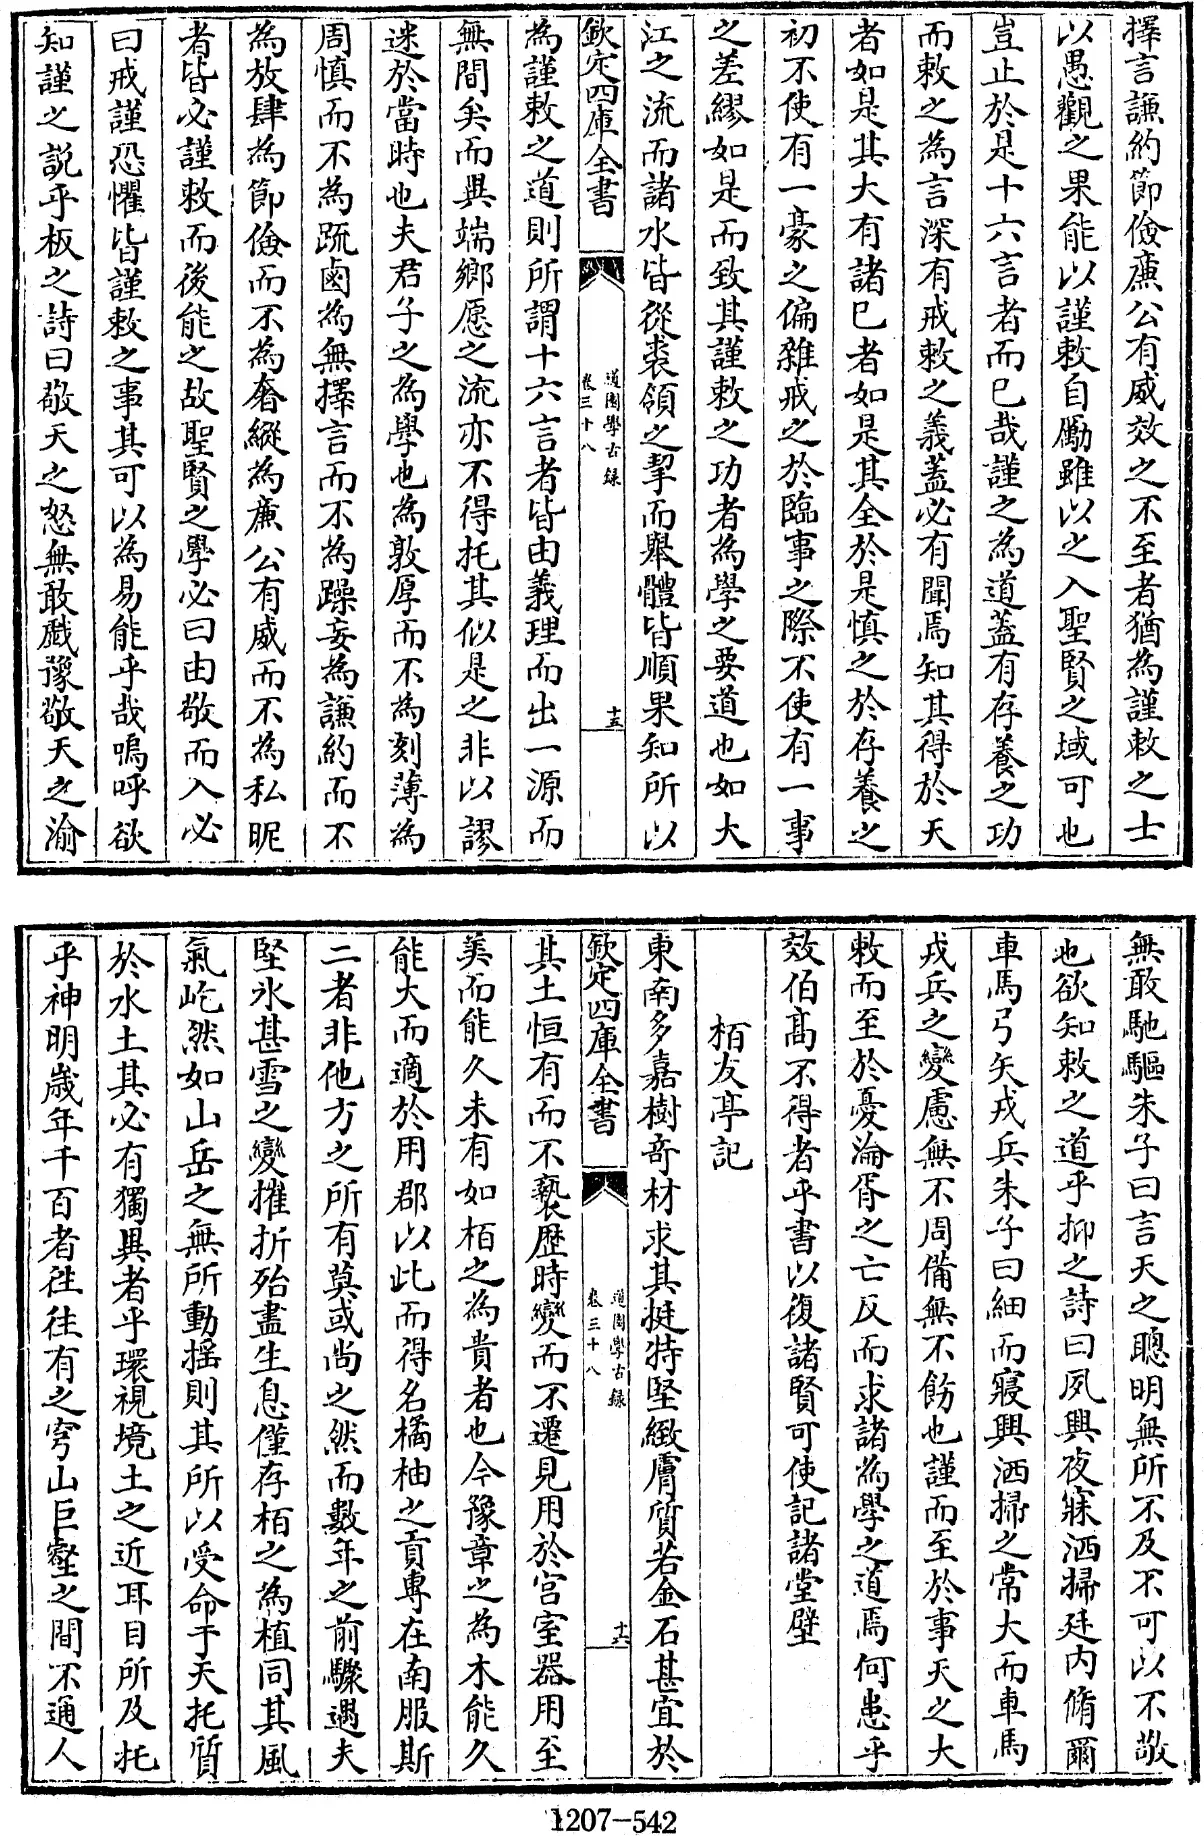 擇言謙約節儉廉公有威效之不至者猶為謹敕之士
以愚觀之果能以謹敕自勵雖以之入聖賢之域可也
豈止於是十六言者而已哉謹之為道蓋有存養之功
而敕之為言深有戒敕之義蓋必有聞焉知其得於天
者如是其大有諸已者如是其全於是慎之於存養之
初不使有一豪之偏雜戒之於臨事之際不使有一事
之差繆如是而致其謹敕之功者為學之要道也如大
江之流而諸水皆從裘領之挈而舉體皆順果知所以
欽定四庫全書
道園學古録
卷三十八
十五
為謹敕之道則所謂十六言者皆由義理而出一源而
無間矣而與端鄉愿之流亦不得托其似是之非以謬
迷於當時也夫君子之為學也為敦厚而不為刻薄為
周慎而不為疏鹵為無擇言而不為躁妄為謙約而不
為放肆為節儉而不為奢縱為廉公有威而不為私昵
者皆必謹敕而後能之故聖賢之學必曰由敬而入必
曰戒謹恐懼皆謹敕之事其可以為易能乎哉嗚呼欲
知謹之説乎板之詩曰敬天之怒無敢戲豫敬天之渝
無敢馳驅朱子曰言天之聰明無所不及不可以不敬
也欲知敕之道乎抑之詩曰夙興夜寐洒掃廷内脩爾
車馬弓矢戎兵朱子曰細而寢興洒掃之常大而車馬
戎兵之變慮無不周備無不飭也謹而至於事天之大
敕而至於憂淪胥之亡反而求諸為學之道焉何患乎
效伯髙不得者乎書以復諸賢可使記諸堂壁
栢友亭記
東南多嘉樹奇材求其挺特堅緻膚質若金石甚宜於
欽定四庫全書
道園學古録
卷三十八
十六
其土恒有而不褻歴時變而不遷見用於宫室器用至
美而能久未有如栢之為貴者也今豫章之為木能久
能大而適於用郡以此而得名橘柚之貢專在南服斯
二者非他方之所有莫或尚之然而數年之前驟遇夫
堅氷甚雪之變摧折殆盡生息僅存栢之為植同其風
氣屹然如山岳之無所動揺則其所以受命于天托質
於水土其必有獨異者乎環視境土之近耳目所及托
乎神明歳年千百者往往有之穹山巨壑之間不通人
1207-542